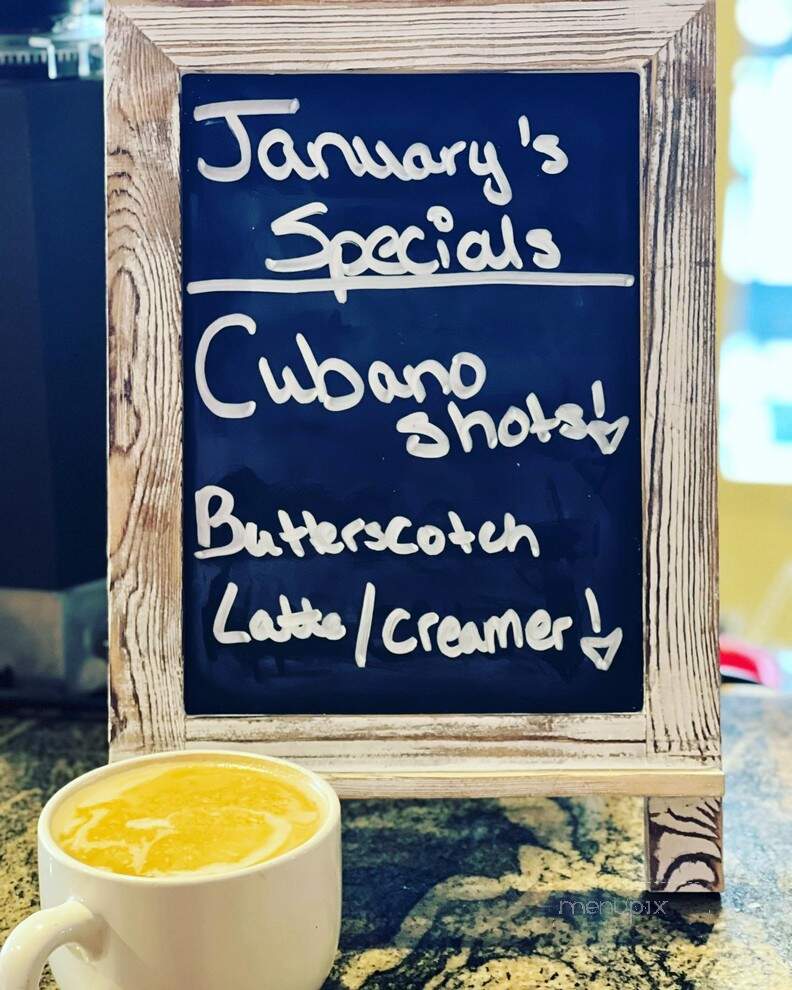 January's
Specials
Cubano
shots!
Butterscotch
Latte/creamer!
menupix